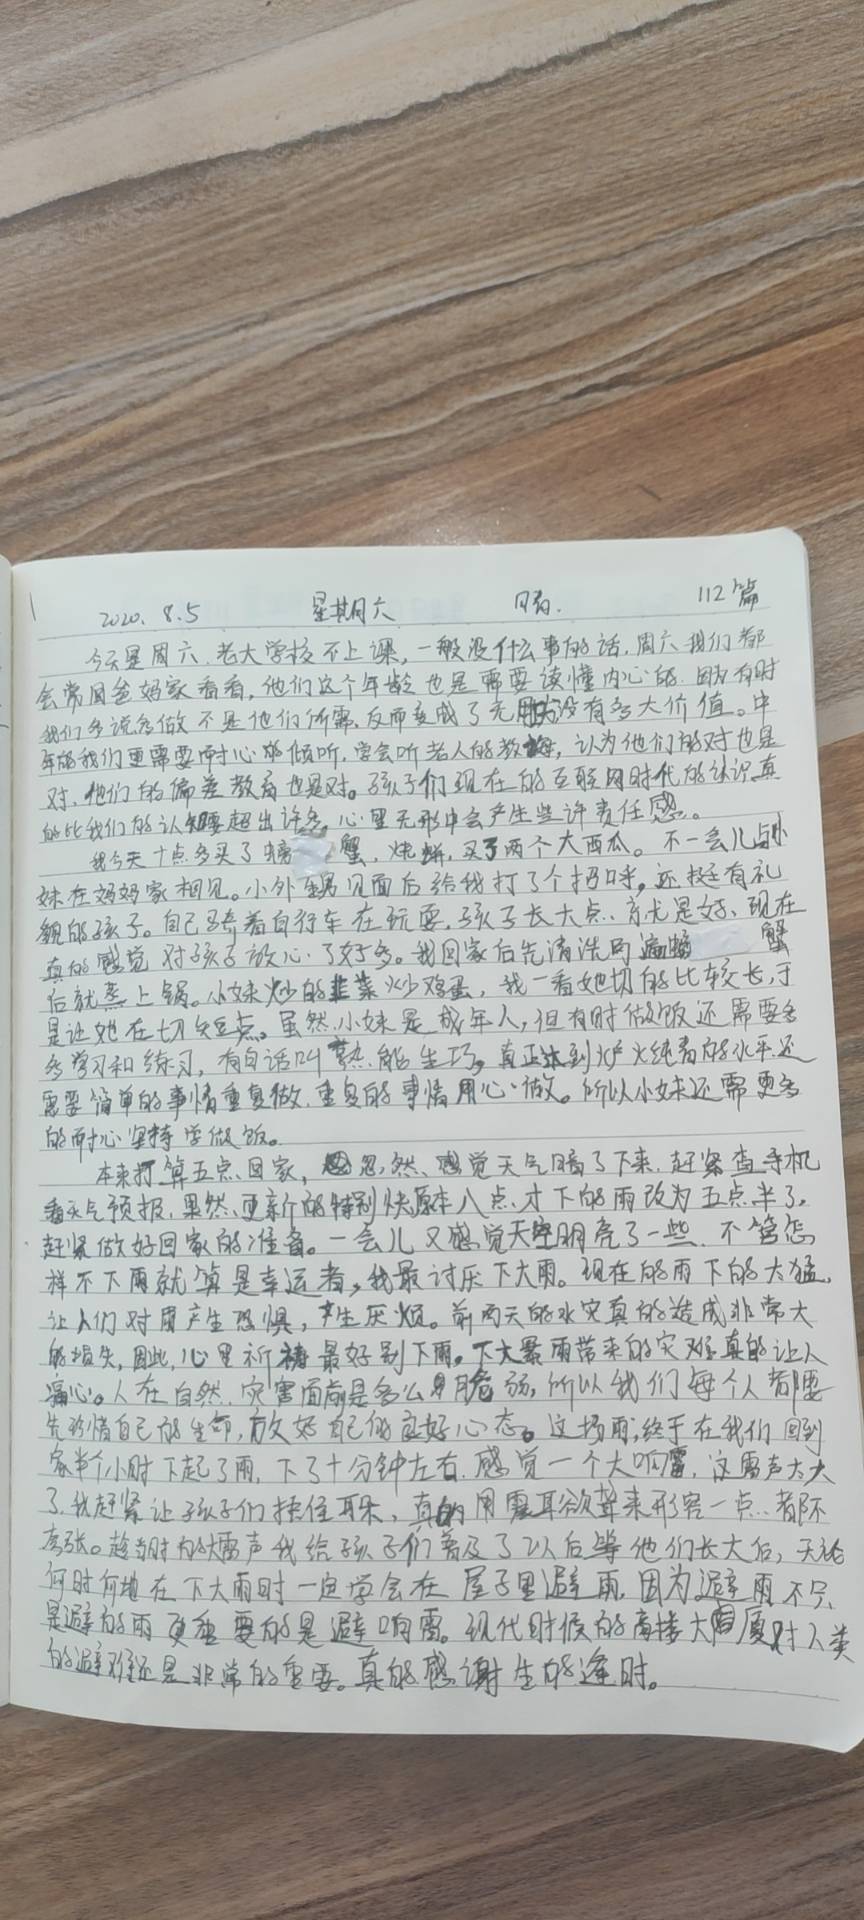 2020.8.5 星期六 晴. 112篇
今天星周六.老大学校不上课,一般没什么事的话,周六我们都
会常回爸妈家看看,他们这个年龄也是需要读懂内心的.因为有时
我们多说多做不是他们所需,反而变成了无用没有多大价值。中
年的我们更需要耐心的倾听,学会听老人的教诲,认为他们的对也是
对,他们的偏差教育也是对。孩子们现在的互联网时代的认识真
的比我们的认知要超出许多,心里无形中会产生些许责任感。
我今天十点多买了螃蟹,烧饼,买了两个大西瓜。不一会儿与小
妹在妈妈家相见。小外甥见面后给我打了个招呼,还挺有礼
貌的孩子。自己骑着自行车在玩耍.孩子长大点.就是好、现在
真的感觉对孩子放心了好多。我回家后先清洗两遍螃蟹
后就蒸上锅。小妹炒的韭菜炒鸡蛋,我一看她切的比较长,于
是让她在切短点。虽然小妹是成年人,但有时做饭还需要多
多学习和练习,有句话叫熟能生巧,真正达到炉火纯青的水平还
需要简单的事情重复做.重复的事情用心做。所以小妹还需更多
的耐心坚持学做饭。
本来打算五点回家,忽然、感觉天气暗了下来.赶紧查手机
看天气预报,果然、更新的特别快原本八点才下的雨改为五点半了。
赶紧做好回家的准备。一会儿又感觉天空明亮了一些.不管怎
样不下雨就算是幸运者,我最讨厌下大雨。现在的雨下的太猛,
让人们对雨产生恐惧,产生厌烦。前两天的水灾真的造成非常大
的损失,因此,心里祈祷最好别下雨。下大暴雨带来的灾难真的让人
痛心。人在自然.灾害面前是多么的脆弱,所以我们每个人都要
先珍惜自己的生命,放好自己的良好心态。这场雨,终于在我们回到
家半个小时下起了雨.下了十分钟左右.感觉一个大响雷,这雷声太大
了.我赶紧让孩子们捂住耳朵,真的用震耳欲聋来形容一点.都不
夸张。趁当时的大雷声我给孩子们普及了以后等他们长大后,无论
何时何地在下大雨时一定学会在屋子里避雨.因为避雨不只
是避的雨更重要的是避响雷。现代时候的高楼大厦对人类
的避难还是非常的重要。真的感谢生的逢时。